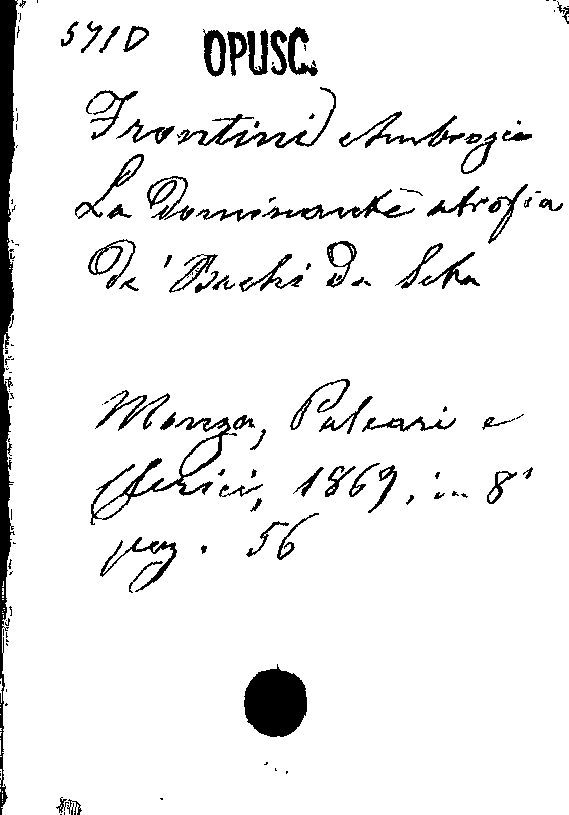 571D OPUSC.
Frontini Ambrogio
La Dominante atrofia
de' Bachi da Seta
Monza, Paleari e
1869, in 8°
pag. 56